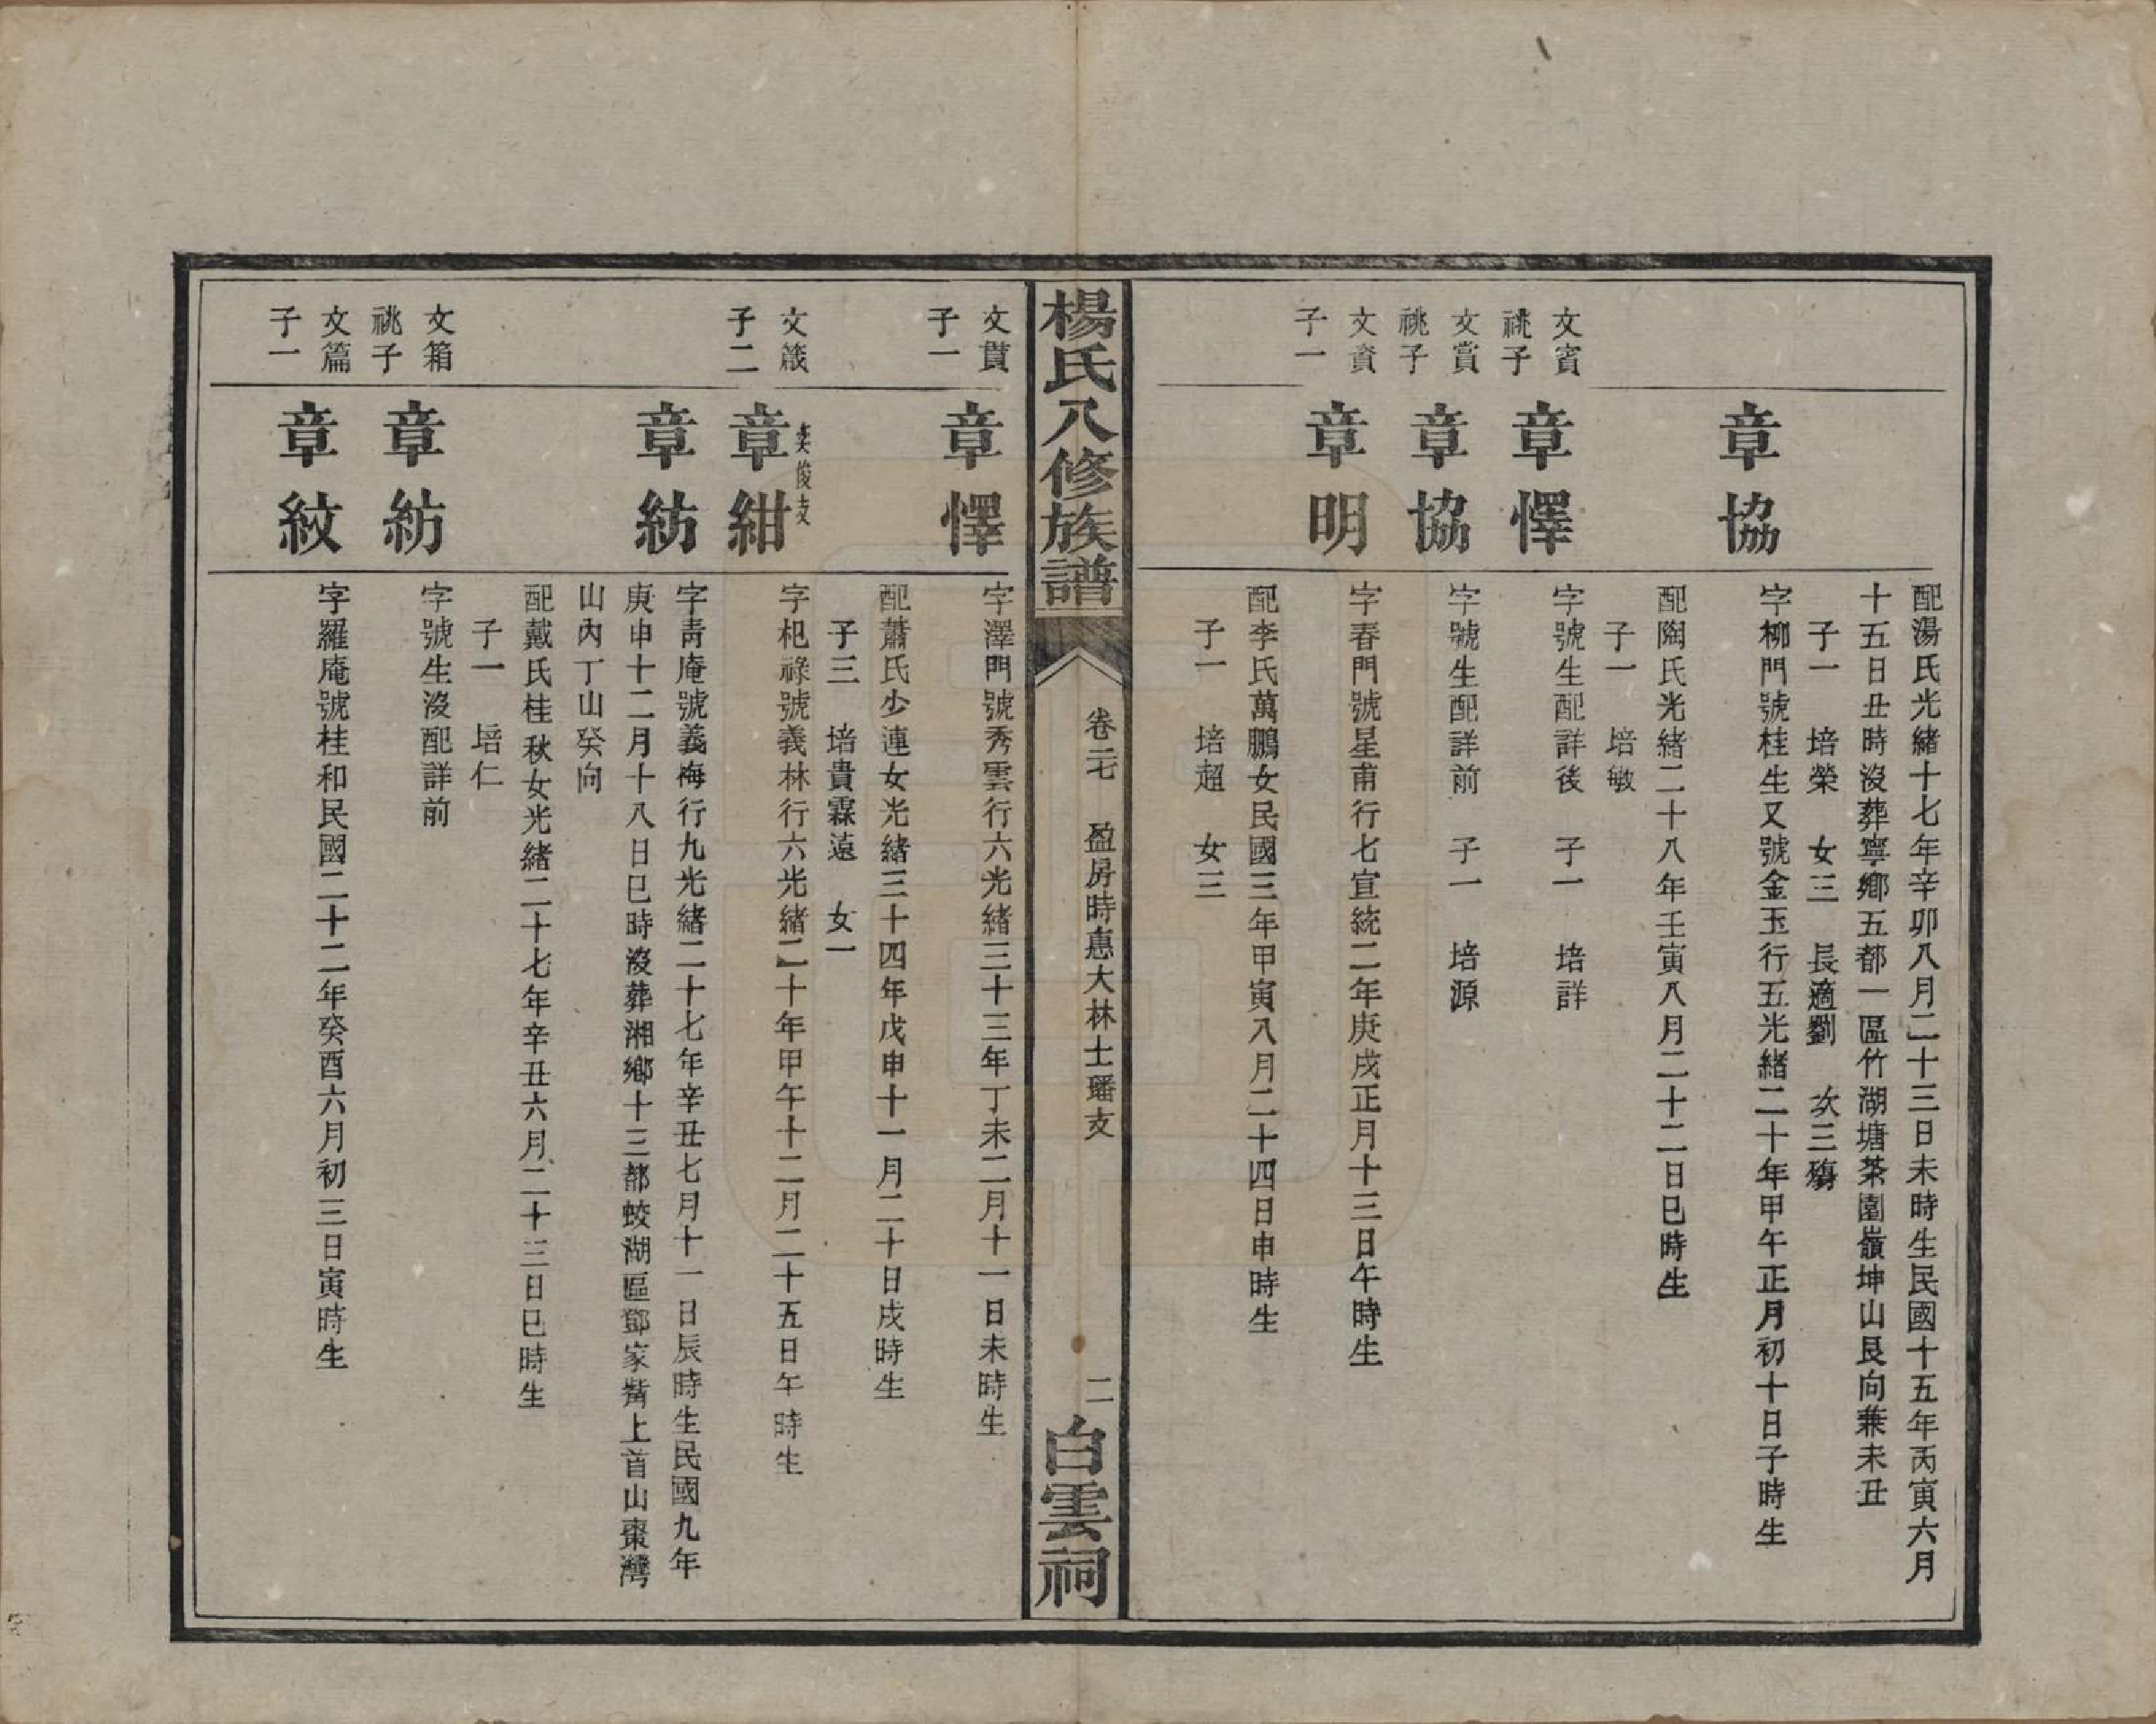 配湯氏光緒十七年辛卯八月二十三日未時生民國十五年丙寅六月
十五日丑時沒葬寧鄉五都一區竹湖塘茶園嶺坤山艮向兼未丑
子一 培榮 女三 長適劉 次三殤
章協
字柳門號桂生又號金玉行五光緒二十年甲午正月初十日子時生
配陶氏光緒二十八年壬寅八月二十二日巳時生
子一 培敏
文賓
祧子
章懌
字號生配詳後 子一 培詳
文賞
祧子
章協
字號生配詳前 子一 培源
文賚
子一
章明
字春門號星甫行七宣統二年庚戌正月十三日午時生
配李氏萬鵬女民國三年甲寅八月二十四日申時生
子一 培超 女三
楊氏八修族譜
卷二七 盈房時惠大林士璠支
二
白雲祠
文貫
子一
章懌
字澤門號秀雲行六光緒三十三年丁未二月十一日未時生
配蕭氏少連女光緒三十四年戊申十一月二十日戌時生
子三 培貴霖遠 女一
文箴
子二
美俊支
章紺
字杞祿號義林行六光緒二十年甲午十二月二十五日午時生
章紡
字青庵號義梅行九光緒二十七年辛丑七月十一日辰時生民國九年
庚申十二月十八日巳時沒葬湘鄉十三都蛟湖區鄧家嘴上首山棗灣
山內丁山癸向
配戴氏桂秋女光緒二十七年辛丑六月二十三日巳時生
子一 培仁
文箱
祧子
章紡
字號生沒配詳前
文篇
子一
章紋
字羅庵號桂和民國二十二年癸酉六月初三日寅時生